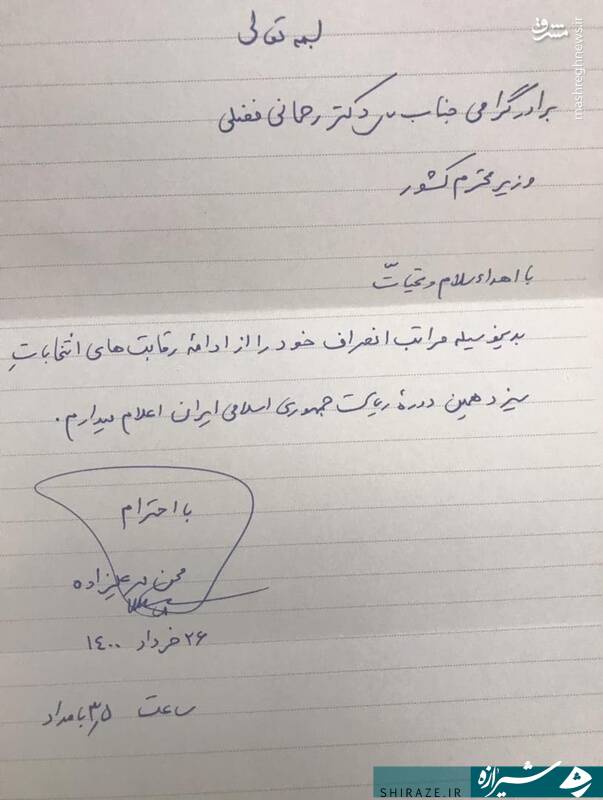 بسمه تعالی
مشرق
mashreghnews.ir
برادر گرامی جناب آقای دکتر رحمانی فضلی
وزیر محترم کشور
با اهداء سلام و تحیات
بدینوسیله مراتب انصراف خود را از ادامهٔ رقابت های انتخاباتِ
سیزدهمین دورهٔ ریاست جمهوری اسلامی ایران اعلام میدارم.
با احترام
محسن مهرعلیزاده
۲۶ خرداد ۱۴۰۰
ساعت ۳٫۵ بامداد
شیرازه
SHIRAZE.IR